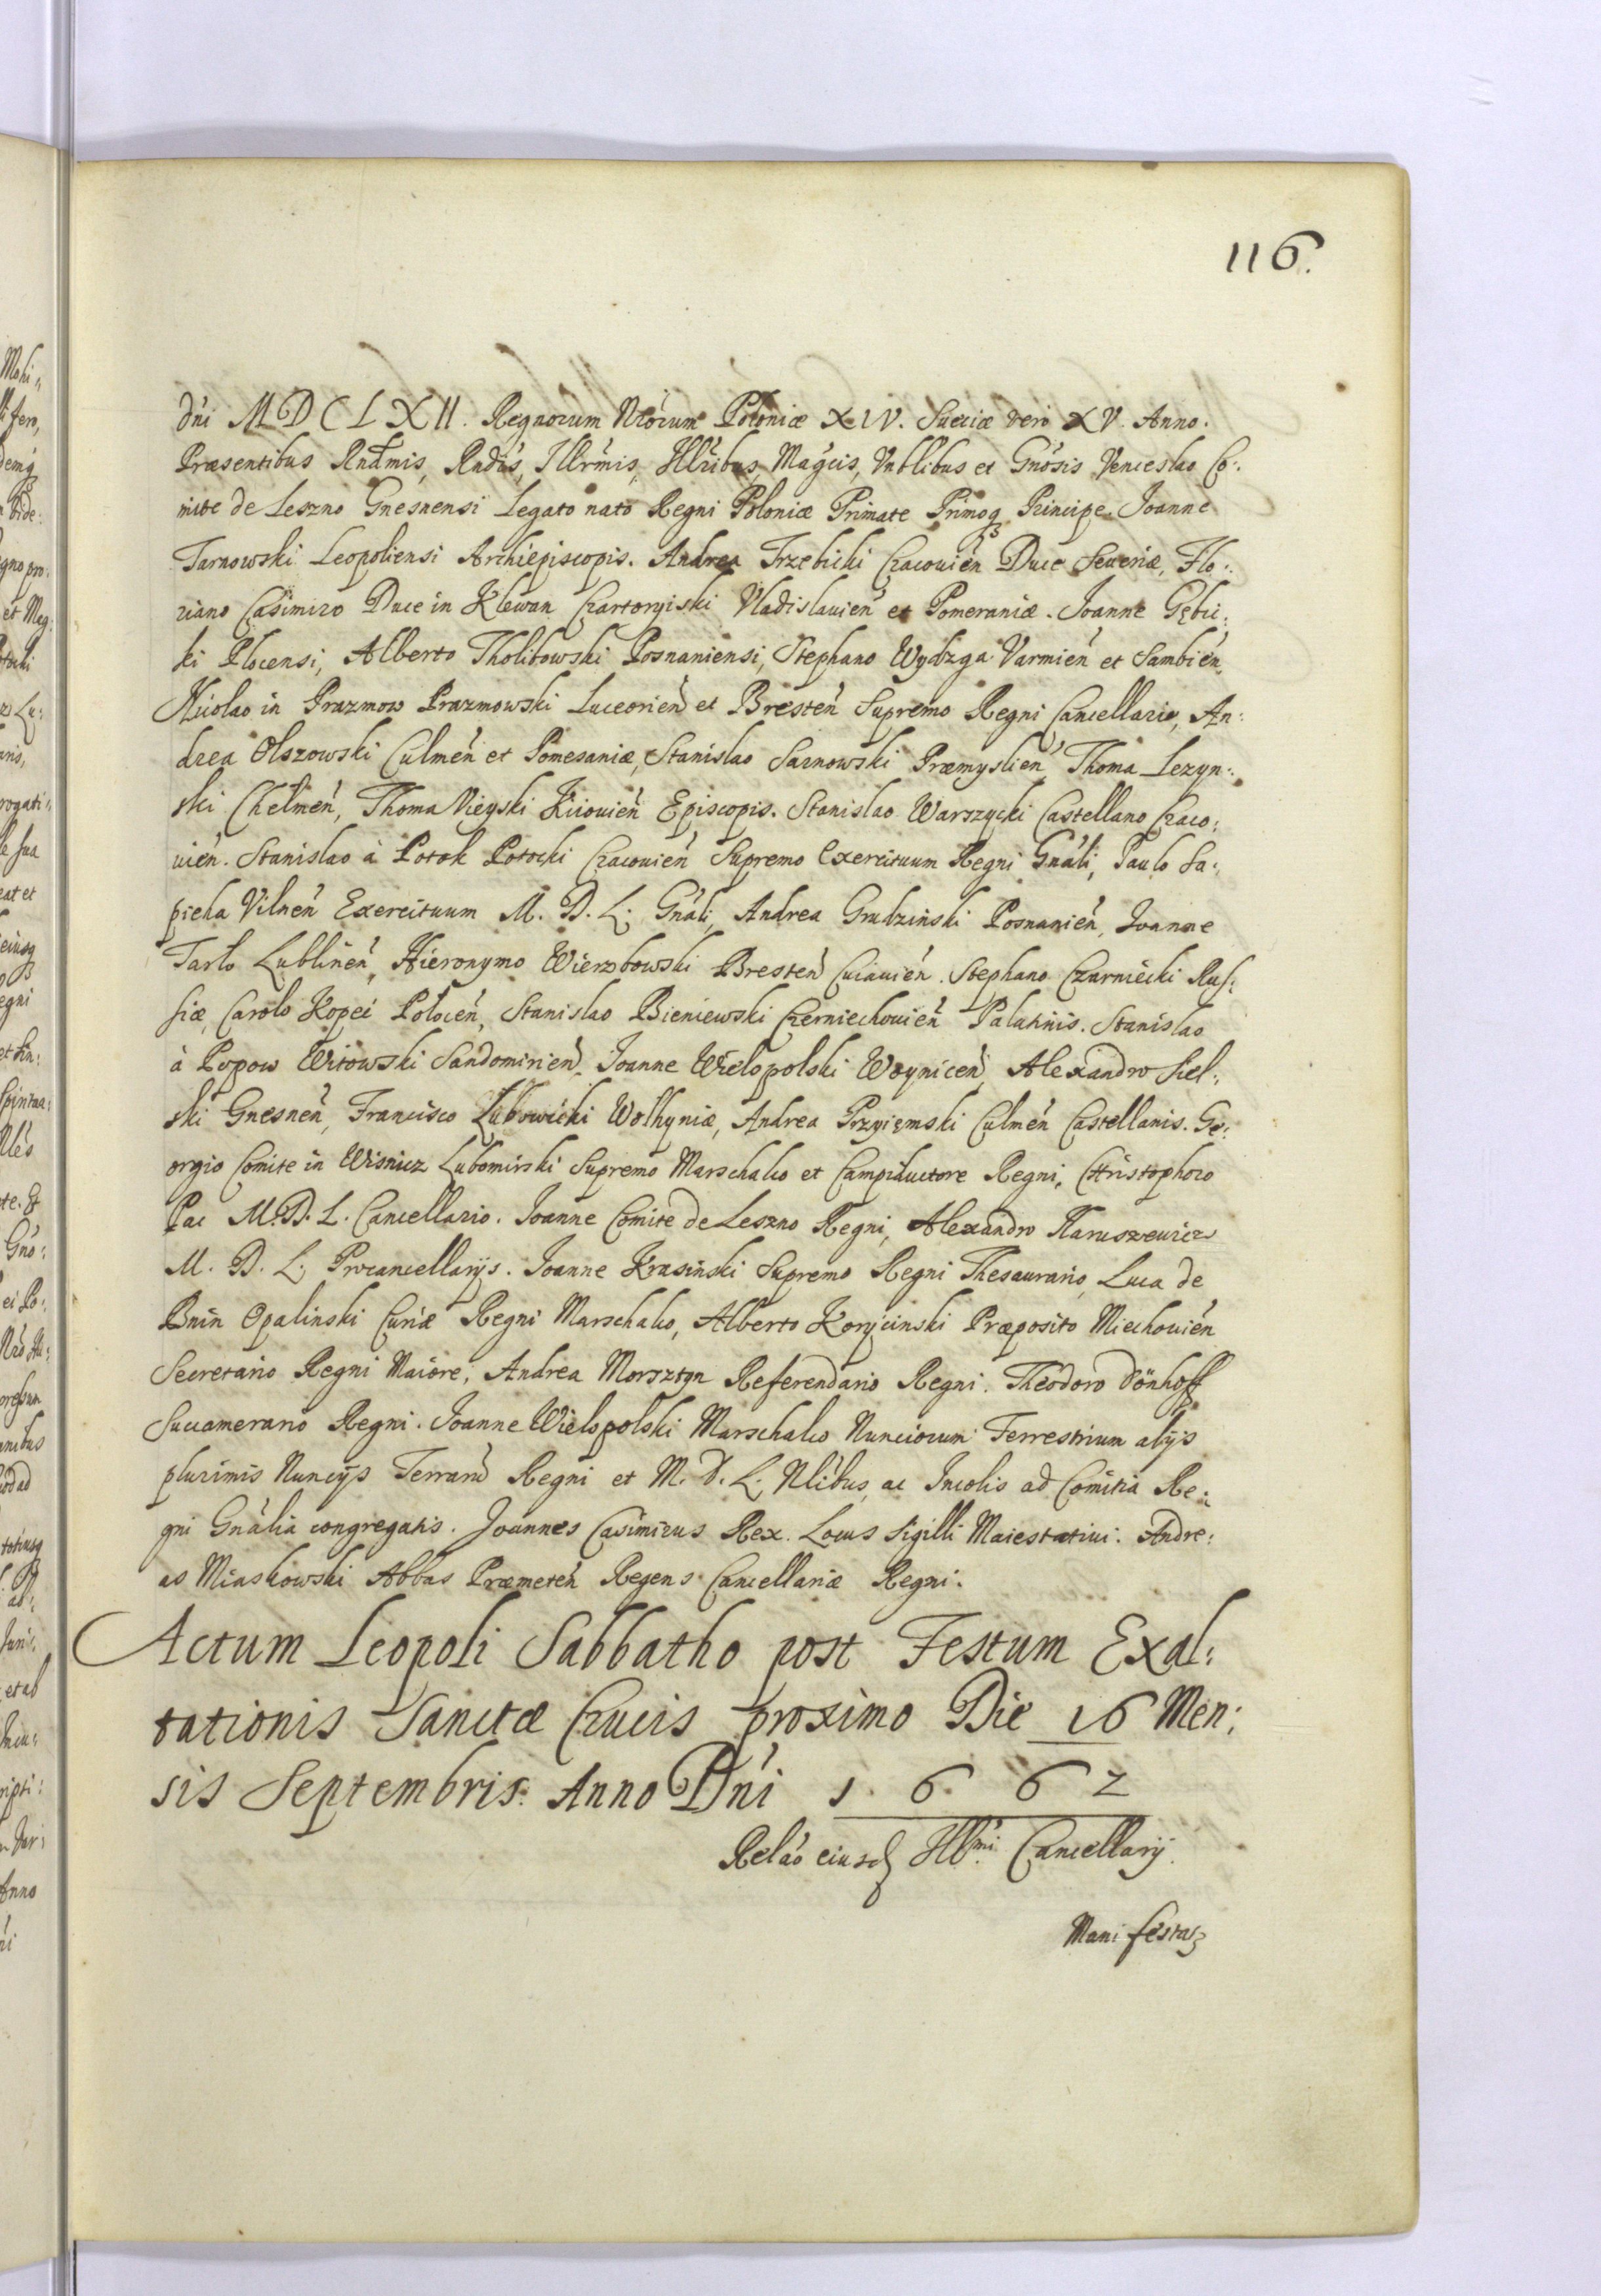 116.
Dni MDCLXII. Regnorum Nrorum Poloniæ XIV. Sueciæ vero XV. Anno.
Præsentibus Rndmis, Rndis, Illrmis, Illribus, Magcis, Vnblibus et Gnosis Venceslao Co:
mite de Leszno Gnesnensi Legato nato Regni Poloniæ Primate Primoq Principe. Joanne
Tarnowski Leopoliensi Archiepiscopis. Andrea Trzebicki Cracouien Duce Seueriæ, Flo:
riano Casimiro Duce in Klewan Czartoryiski Vladislauien et Pomeraniæ. Joanne Gębic:
ki Plocensi, Alberto Tholibowski Posnaniensi, Stephano Wydzga Varmien et Sambien
Nicolao in Prazmow Prazmowski Luceorien et Bresten Supremo Regni Cancellario, An:
drea Olszowski Culmen et Pomesaniæ, Stanislao Sarnowski Præmyslien, Thoma Lezyn:
ski Chelmen, Thoma Vieyski Kiiouien Episcopis. Stanislao Warszycki Castellano Craco:
uien. Stanislao à Potok Potocki Cracouien Supremo Exercituum Regni Gnali, Paulo Sa:
pieha Vilnen Exercituum M. D. L. Gnali, Andrea Grudzinski Posnanien, Joanne
Tarlo Lublinen, Hieronymo Wierzbowski Bresten Cuiauien. Stephano Czarniecki Rus:
siæ, Carolo Kopei Polocen, Stanislao Bieniewski Czerniechouien Palatinis. Stanislao
à Popow Witowski Sandomirien, Joanne Wielopolski Woynicen, Alexandro Siel:
ski Gnesnen, Francisco Lubowicki Wolhyniæ, Andrea Przyięmski Culmen Castellanis. Ge:
orgio Comite in Wisnicz Lubomirski Supremo Marschalco et Campiductore Regni, Christophoro
Pac M. D. L. Cancellario. Joanne Comite de Leszno Regni, Alexandro Naruszewicz
M. D. L. Procancellarijs. Joanne Krasinski Supremo Regni Thesaurario, Luca de
Bnin Opalinski Curiæ Regni Marschalco, Alberto Korycinski Præposito Miechouien
Secretario Regni Maiore, Andrea Morsztyn Referendario Regni. Theodoro Dönhoff
Succamerario Regni. Joanne Wielopolski Marschalco Nunciorum Terrestrium alijs
plurimis Nuncijs Terrarũ Regni et M. D. L. Nlibus, ac Incolis ad Comitia Re:
gni Gnalia congregatis. Joannes Casimirus Rex. Locus Sigilli Maiestatiui. Andre:
as Miaskowski Abbas Præmeten Regens Cancellariæ Regni.
Actum Leopoli Sabbatho post Festum Exal:
tationis Sanctæ Crucis proximo Die 16 Men:
sis Septembris. Anno Dni 1662
Relao eiusd Illmi Cancellarij.
Manifestaõ